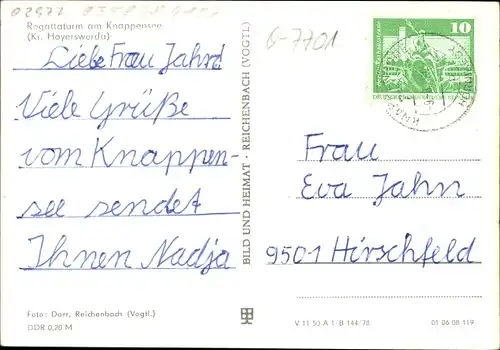 Regattaturm am Knappensee
(Kr. Hoyerswerda)
Liebe Frau Jahn
Viele Grüße
vom Knappen-
see sendet
Ihnen Nadja
Foto: Darr, Reichenbach (Vogtl.)
DDR 0,20 M
BILD UND HEIMAT · REICHENBACH (VOGTL)
G-7701
10
Frau
Eva Jahn
9501 Hirschfeld
V 11 50 A 1/B 144/78
01 06 08 119